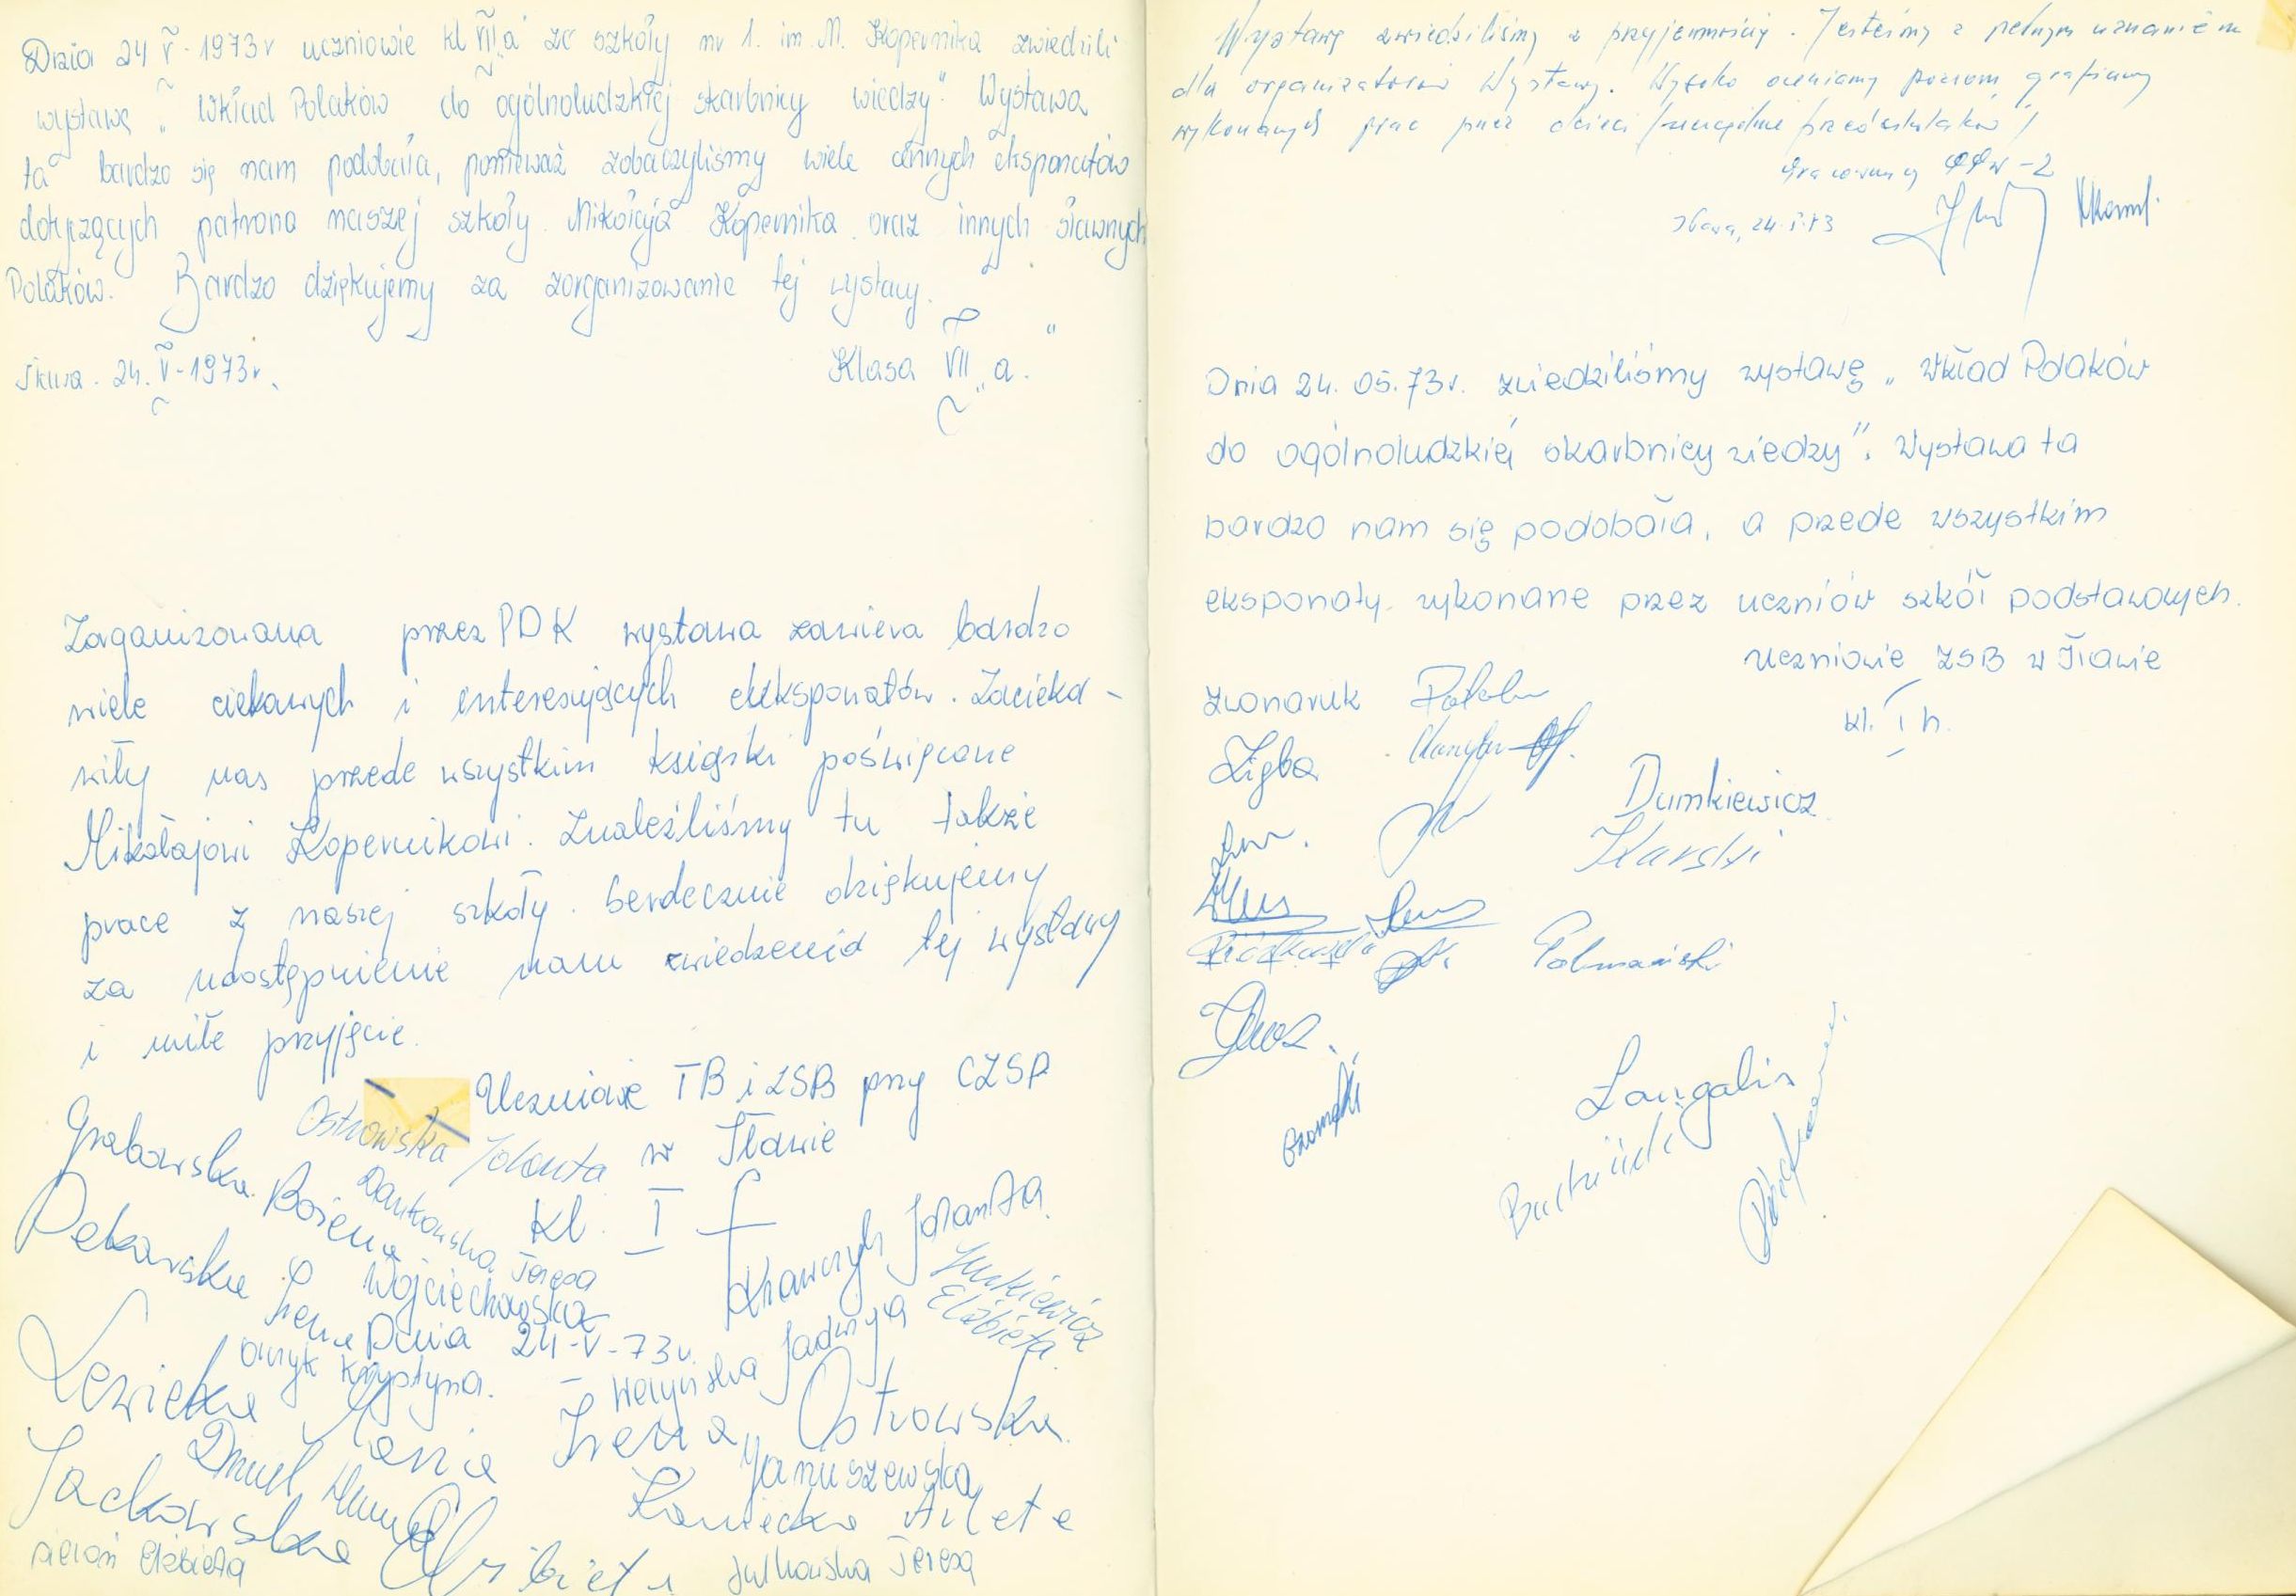 Dnia 24 V-1973r uczniowie kl VII „a" ze szkoły nr 1. im. M. Kopernika zwiedzili
wystawę „Wkład Polaków do ogólnoludzkiej skarbnicy wiedzy". Wystawa
ta bardzo się nam podobała, ponieważ zobaczyliśmy wiele cennych eksponatów
dotyczących patrona naszej szkoły Mikołaja Kopernika oraz innych sławnych
Polaków. Bardzo dziękujemy za zorganizowanie tej wystawy.
Iława. 24. V-1973r.
Klasa VII „a."
Zorganizowana przez PDK wystawa zawiera bardzo
wiele ciekawych i interesujących ekksponatów. Zacieka-
wiły nas przede wszystkim książki poświęcone
Mikołajowi Kopernikowi. Znaleźliśmy tu także
prace z naszej szkoły. Serdecznie dziękujemy
za udostępnienie nam zwiedzenia tej wystawy
i miłe przyjęcie.
Uczniowie TB i ZSB przy CZSP
w Iławie
Kl. I f
Ostrowska Jolanta
Grabowska Bożena
Dankowska Teresa
Pekarska Irena
Wojciechowska
Dnia 24-V-73r.
Krawczyk Jolanta
Jurkiewicz Elżbieta
Jadwiga
Krystyna.
Lewicka Maria
Irena Ostrowska
Januszewska
Kaniecka Arleta
Jackowska Elżbieta
Elżbieta
Julkowska Teresa
Wystawę zwiedziliśmy z przyjemnością. Jesteśmy z pełnym uznaniem
dla organizatorów Wystawy. Wysoko oceniamy poziom graficzny
wykonanych prac przez dzieci /szczególnie przedszkolaków/
Iława, 24.V.73
Dnia 24. 05. 73r. zwiedziliśmy wystawę „Wkład Polaków
do ogólnoludzkiej skarbnicy wiedzy". Wystawa ta
bardzo nam się podobała, a przede wszystkim
eksponaty wykonane przez uczniów szkół podstawowych.
Uczniowie ZSB w Iławie
kl. I h.
Zwonaruk
Zięba
Dumkiewicz
Karski
Langalis